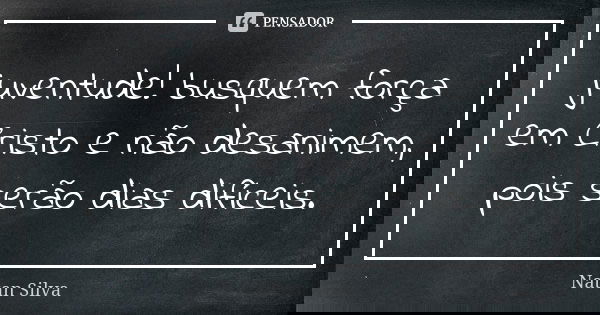 PENSADOR
juventude! busquem força
em Cristo e não desanimem,
pois serão dias difíceis.
Natan Silva